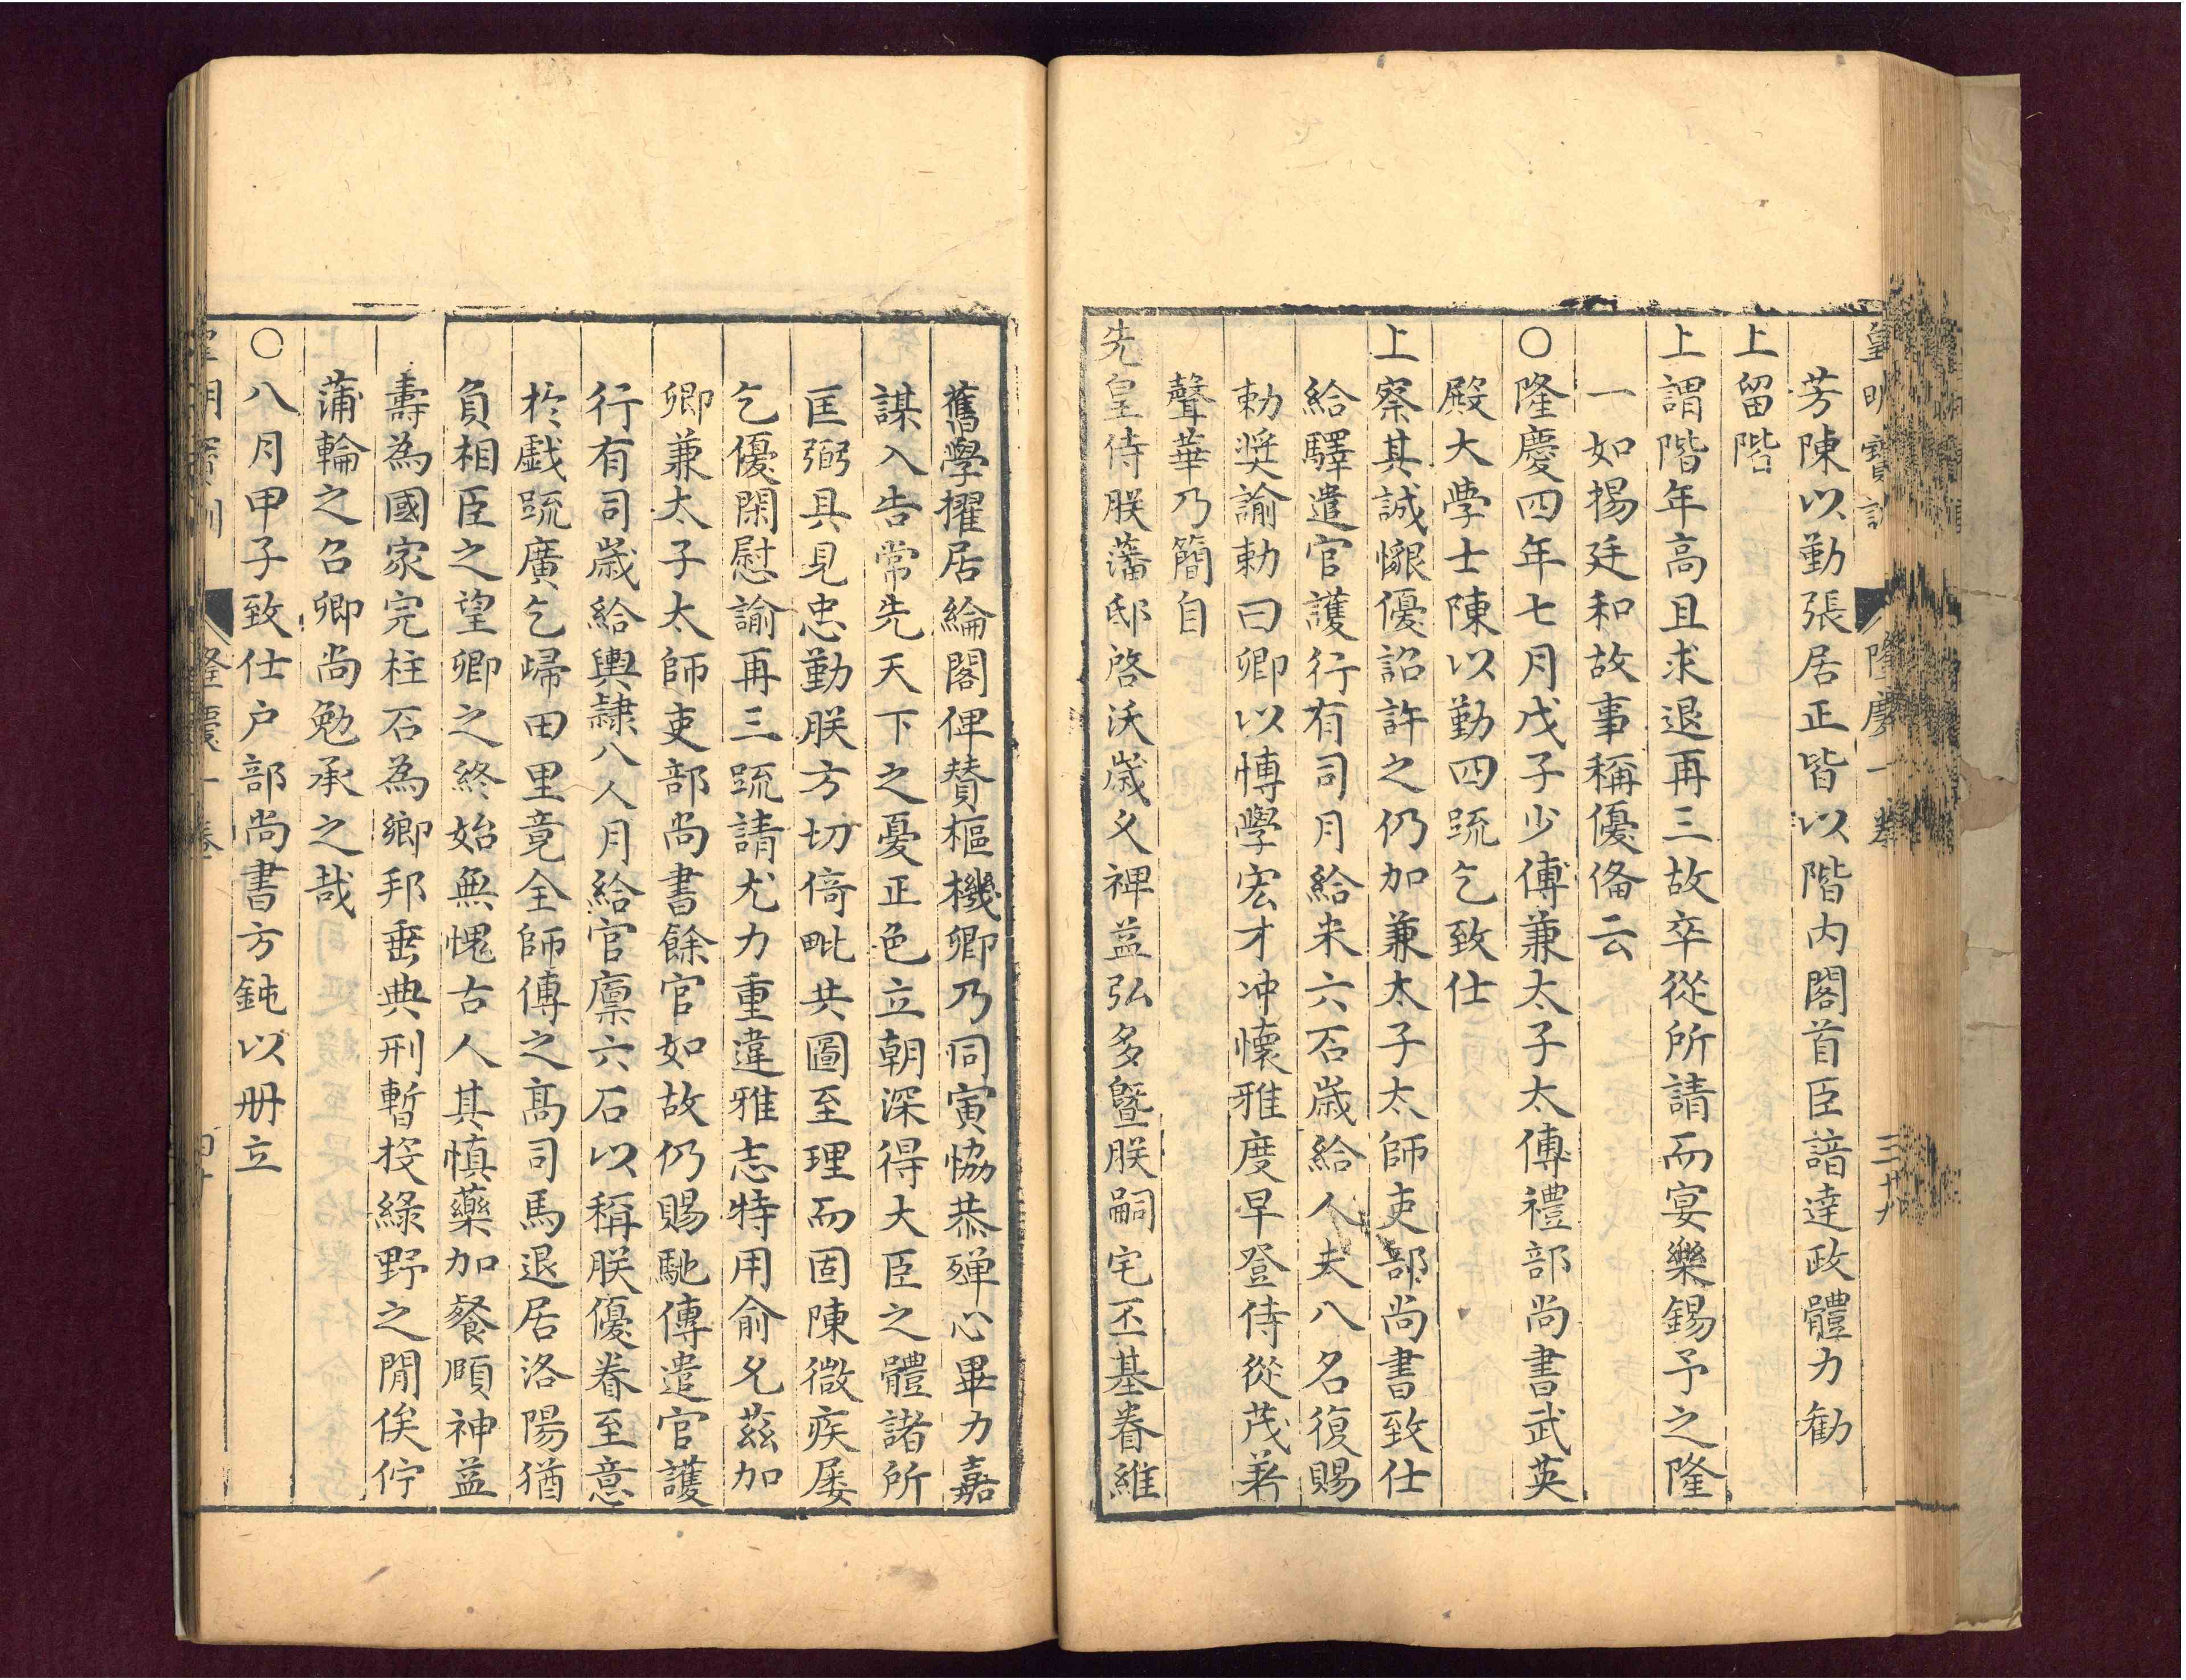 皇明寶訓 隆慶一卷 三十九
芳陳以勤張居正皆以階內閣首臣諳達政體力勸
上留階
上謂階年高且求退再三故卒從所請而宴樂錫予之隆
一如揚廷和故事稱優俻云
○隆慶四年七月戊子少傅兼太子太傅禮部尚書武英
殿大學士陳以勤四䟽乞致仕
上察其誠懇優詔許之仍加兼太子太師吏部尚書致仕
給驛遣官護行有司月給米六石歲給人夫八名復賜
勅奨諭勅曰卿以愽學宏才冲懷雅度早登侍從茂著
聲華乃簡自
先皇侍朕藩邸啓沃歲久裨益弘多曁朕嗣宅丕基眷維
舊學擢居綸閣俾賛樞機卿乃同寅恊恭殫心畢力嘉
謀入告常先天下之憂正色立朝深得大臣之體諸所
匡弼具見忠勤朕方切倚毗共圖至理而固陳微疾屢
乞優閑慰諭再三䟽請尤力重違雅志特用俞允茲加
卿兼太子太師吏部尚書餘官如故仍賜馳傳遣官護
行有司歲給輿隷八人月給官廪六石以稱朕優眷至意
於戲䟽廣乞歸田里竟全師傅之髙司馬退居洛陽猶
負相臣之望卿之終始無愧古人其慎藥加餐頤神益
壽為國家完柱石為鄉邦垂典刑暫投綠野之閒俟佇
蒲輪之召卿尚勉承之哉
○八月甲子致仕户部尚書方鈍以冊立
皇明寶訓 隆慶一卷 四十